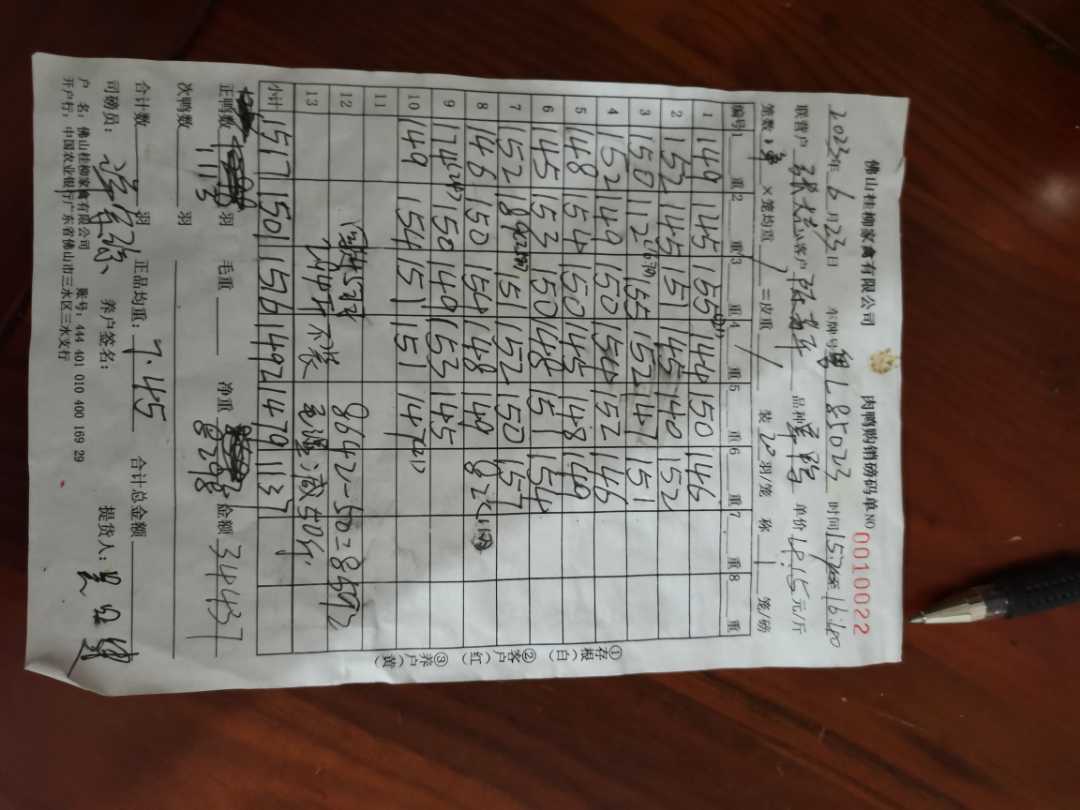 佛山桂柳家禽有限公司 肉鸭购销磅码单 NO 0010022
2023年6月23日 车牌号 粤L85023 时间15:20至16:40
联营户 客户 品种 单价4.15元/斤
笼数 ×笼均重 / =皮重 / 装20羽/笼 称1笼/磅
编号 1 重 2 重 3 重 4 重 5 重 6 重 7 重 8 重
1 149 145 155 144 150 146
2 153 145 151 145 140 152
3 150 112 155 152 147 151
4 152 149 150 154 152 146
5 148 154 150 145 148 149
6 145 153 150 148 151 154
7 152 151 152 150 157
8 146 150 154 148 149 82
9 174 150 149 153 145
10 149 154 151 151 147
11
12 8642-50=8592
13 减50斤
小计 1577 1501 1576 1492 1479 1137
正鸭数 1113 羽 毛重 净重 8298 金额 34437
次鸭数 羽
合计数 羽 正品均重: 7.45 合计总金额
司磅员: 养户签名: 提货人:
户 名: 佛山桂柳家禽有限公司 账号: 444 401 010 400 169 29
开户行: 中国农业银行广东省佛山市三水区三水支行
①存根(白) ②客户(红) ③养户(黄)